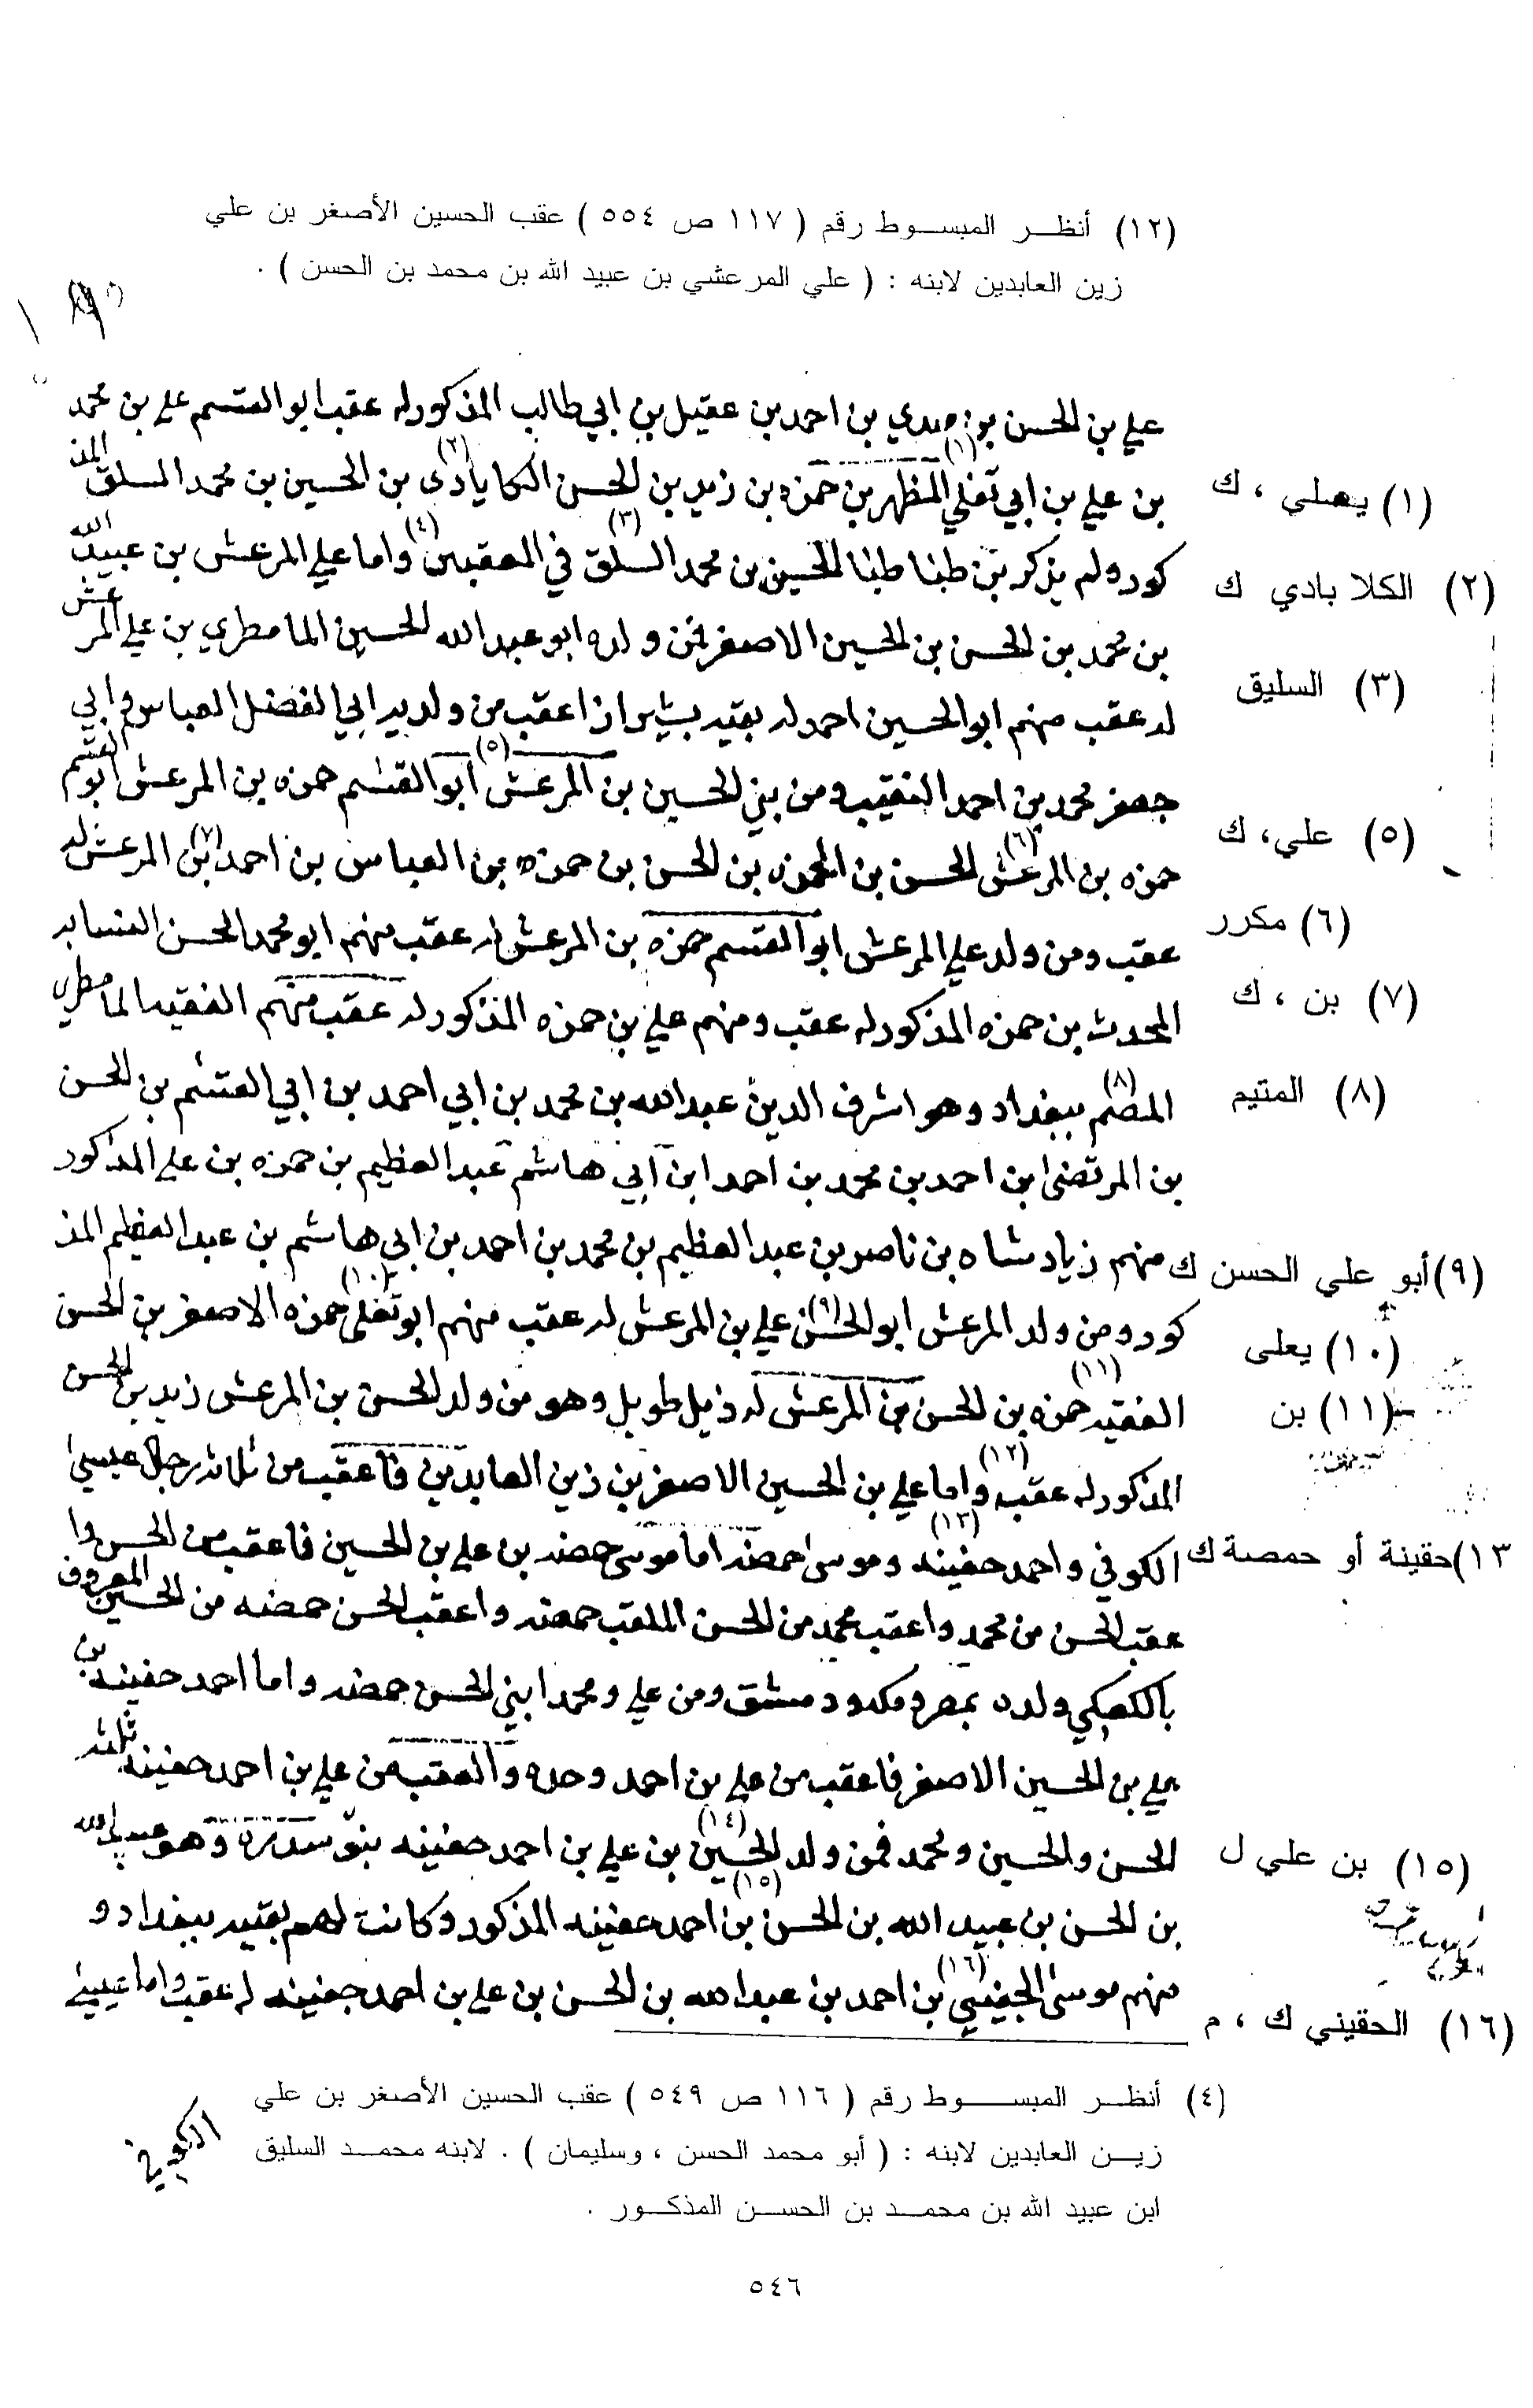 (١٢) أنظـــر المبســوط رقم ( ١١٧ ص ٥٥٤ ) عقب الحسين الأصغر بن علي
زين العابدين لابنه : ( علي المرعشي بن عبيد الله بن محمد بن الحسن ) .
علي بن الحسن بن مهدي بن احمد بن عقيل بن ابي طالب المذكور له عقب ابو القسم علي بن محمد
بن علي بن ابي تغلي (١) المظهر بن حمزه بن زيد بن الحسن الكايادى (٢) بن الحسين بن محمد السلق المذ
(١) يعلي ، ك
كور ولم يذكر بن طبا طبا الحسين بن محمد السلق (٣) في المعقبين (٤) واما علي المرعش بن عبيد الله
(٢) الكلا بادي ك
بن محمد بن الحسن بن الحسين الاصغر فمن ولده ابو عبد الله الحسين المامطري بن علي المرعش
(٣) السليق
له عقب منهم ابو الحسين احمد له بقيه بشيراز اعقب من ولديه ابي الفضل العباس وابي
جعفر محمد بن احمد النقيب ومن بني الحسين بن المرعش (٥) ابو القسم حمزه بن المرعش ابو القسم
(٥) علي، ك
حمزه بن المرعش (٦) الحسن بن حمزه بن الحسن بن حمزه بن العباس بن احمد (٧) بن المرعش له
(٦) مكرر
عقب ومن ولد علي المرعش ابو القسم حمزه بن المرعش له عقب منهم ابو محمد الحسن النسابه
المحدث بن حمزه المذكور له عقب ومنهم علي بن حمزه المذكور له عقب منهم الفقيه المامطري
(٧) بن ، ك
(٨) بيغداد وهو اشرف الدين عبد الله بن محمد بن ابي احمد بن ابي القسم بن الحسن
(٨) المتيم
بن المرتضى ابن احمد بن محمد بن احمد ابن ابي هاشم عبد العظيم بن حمزه بن علي المذكور
منهم زياد شاه بن ناصر بن عبد العظيم بن محمد بن احمد بن ابي هاشم بن عبد العظيم المذ
(٩) أبو علي الحسن ك
كور ومن ولد المرعش ابو الحسن (٩) علي بن المرعش له عقب منهم ابو تغلى (١٠) حمزه الاصغر بن الحسن
(١٠) يعلى
الفقيه حمزه (١١) بن الحسن من المرعش له ذيل طويل وهو من ولد الحسن بن المرعش زيد بن الحسن
(١١) بن
المذكور له عقب (١٢) واما علي بن الحسين الاصغر بن زين العابدين فاعقب من ثلاثه رجال عيسى
الكوفي واحمد حفينه وموسى حمصه (١٣) اما موسى حمصه بن علي بن الحسين فاعقب من الحسن وا
١٣) حقينة أو حمصة ك
عقب الحسن من محمد واعقب محمد من الحسن الملقب حمصه واعقب الحسن حمصه من الحسين المعروف
بالكعكي ولده بمصر ودمشق ومن علي ومحمد ابني الحسن حمصه واما احمد حفينه بن
علي بن الحسين الاصغر فاعقب من علي بن احمد وحده والعقب من علي بن احمد حفينه ثلثه
الحسن والحسين ومحمد فمن ولد الحسين (١٤) بن علي بن احمد حفينه بنو سدره وهو عبيد الله
(١٥) بن علي ل
بن الحسن بن عبيد الله بن الحسن (١٥) بن احمد حفينه المذكور وكانت لهم بقيه ببغداد و
منهم موسى الجفيني (١٦) بن احمد بن عبد الله بن الحسن بن علي بن احمد جفينه له عقب واما عيسى
(١٦) الحقيني ك ، م
(٤) أنظـــر المبســــوط رقم ( ١١٦ ص ٥٤٩ ) عقب الحسين الأصغر بن علي
زيــن العابدين لابنه : ( أبو محمد الحسن ، وسليمان ) . لابنه محمــد السليق
الكوفي
ابن عبيد الله بن محمــد بن الحســن المذكــور .
٥٤٦